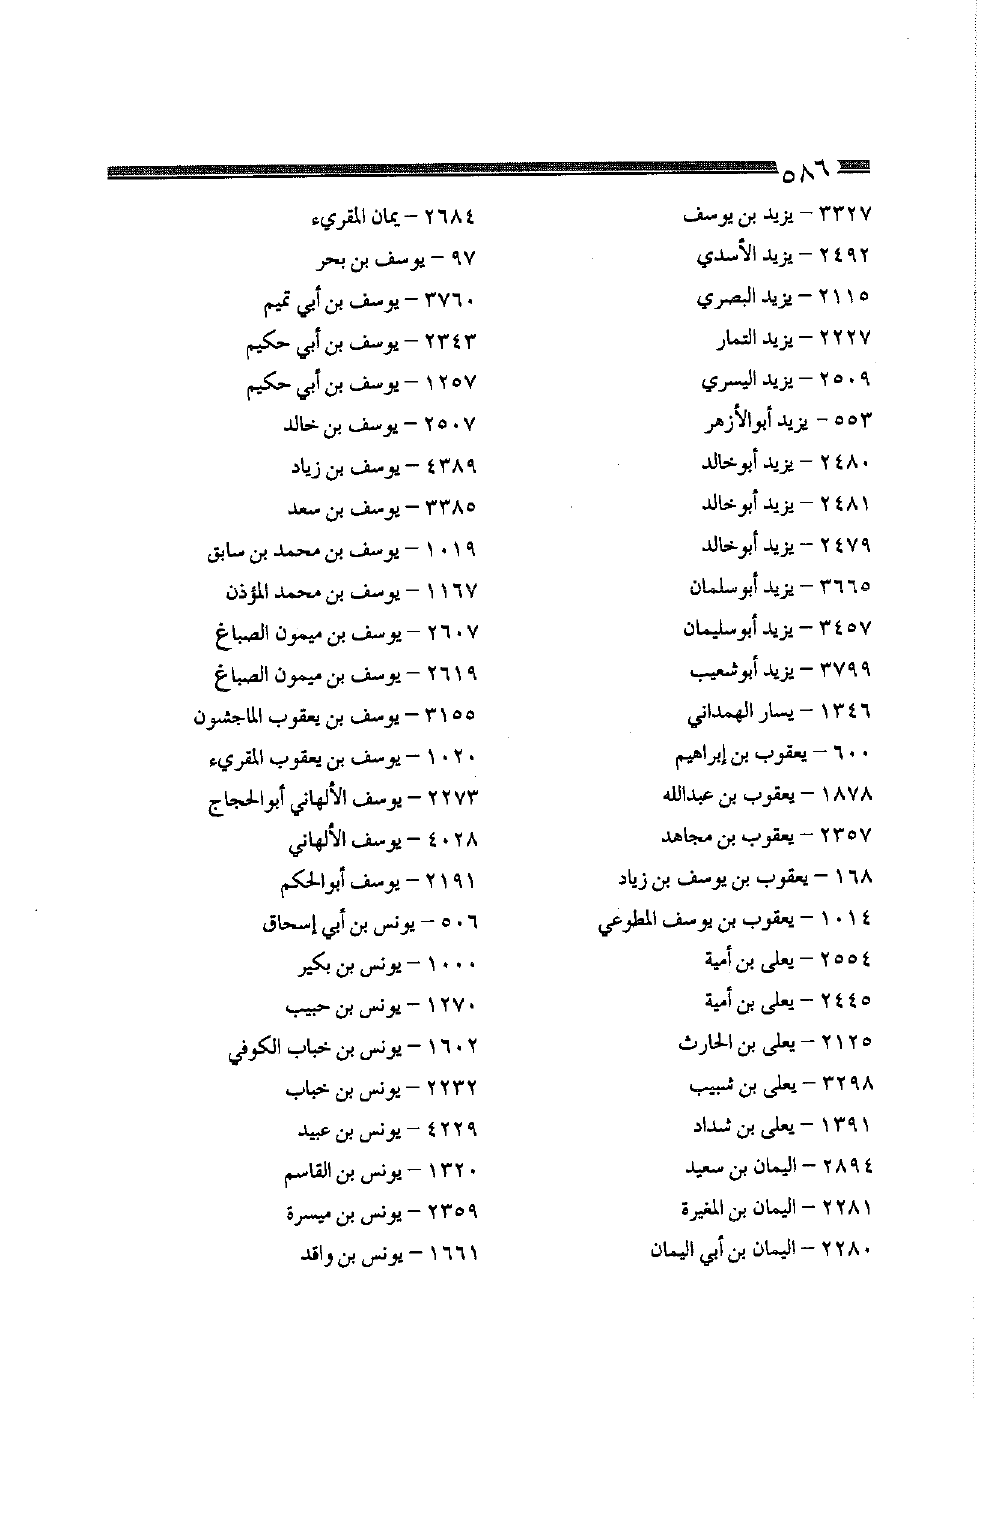 ٥٨٦
٣٣٢٧ – يزيد بن يوسف
٢٤٩٢ – يزيد الأسدي
٢١١٥ – يزيد البصري
٢٢٢٧ – يزيد التمار
٢٥٠٩ – يزيد اليسري
٥٥٣ – يزيد أبوالأزهر
٢٤٨٠ – يزيد أبوخالد
٢٤٨١ – يزيد أبوخالد
٢٤٧٩ – يزيد أبوخالد
٣٦٦٥ – يزيد أبوسلمان
٣٤٥٧ – يزيد أبوسليمان
٣٧٩٩ – يزيد أبوشعيب
١٣٤٦ – يسار الهمداني
٦٠٠ – يعقوب بن إبراهيم
١٨٧٨ – يعقوب بن عبدالله
٢٣٥٧ – يعقوب بن مجاهد
١٦٨ – يعقوب بن يوسف بن زياد
١٠١٤ – يعقوب بن يوسف المطوعي
٢٥٥٤ – يعلى بن أمية
٢٤٤٥ – يعلى بن أمية
٢١٢٥ – يعلى بن الحارث
٣٢٩٨ – يعلى بن شبيب
١٣٩١ – يعلى بن شداد
٢٨٩٤ – اليمان بن سعيد
٢٢٨١ – اليمان بن المغيرة
٢٢٨٠ – اليمان بن أبي اليمان
٢٦٨٤ – يمان المقريء
٩٧ – يوسف بن بحر
٣٧٦٠ – يوسف بن أبي تميم
٢٣٤٣ – يوسف بن أبي حكيم
١٢٥٧ – يوسف بن أبي حكيم
٢٥٠٧ – يوسف بن خالد
٤٣٨٩ – يوسف بن زياد
٣٣٨٥ – يوسف بن سعد
١٠١٩ – يوسف بن محمد بن سابق
١١٦٧ – يوسف بن محمد المؤذن
٢٦٠٧ – يوسف بن ميمون الصباغ
٢٦١٩ – يوسف بن ميمون الصباغ
٣١٥٥ – يوسف بن يعقوب الماجشون
١٠٢٠ – يوسف بن يعقوب المقريء
٢٢٧٣ – يوسف الألهاني أبوالحجاج
٤٠٢٨ – يوسف الألهاني
٢١٩١ – يوسف أبوالحكم
٥٠٦ – يونس بن أبي إسحاق
١٠٠٠ – يونس بن بكير
١٢٧٠ – يونس بن حبيب
١٦٠٢ – يونس بن خباب الكوفي
٢٢٣٢ – يونس بن خباب
٤٢٢٩ – يونس بن عبيد
١٣٢٠ – يونس بن القاسم
٢٣٥٩ – يونس بن ميسرة
١٦٦١ – يونس بن واقد